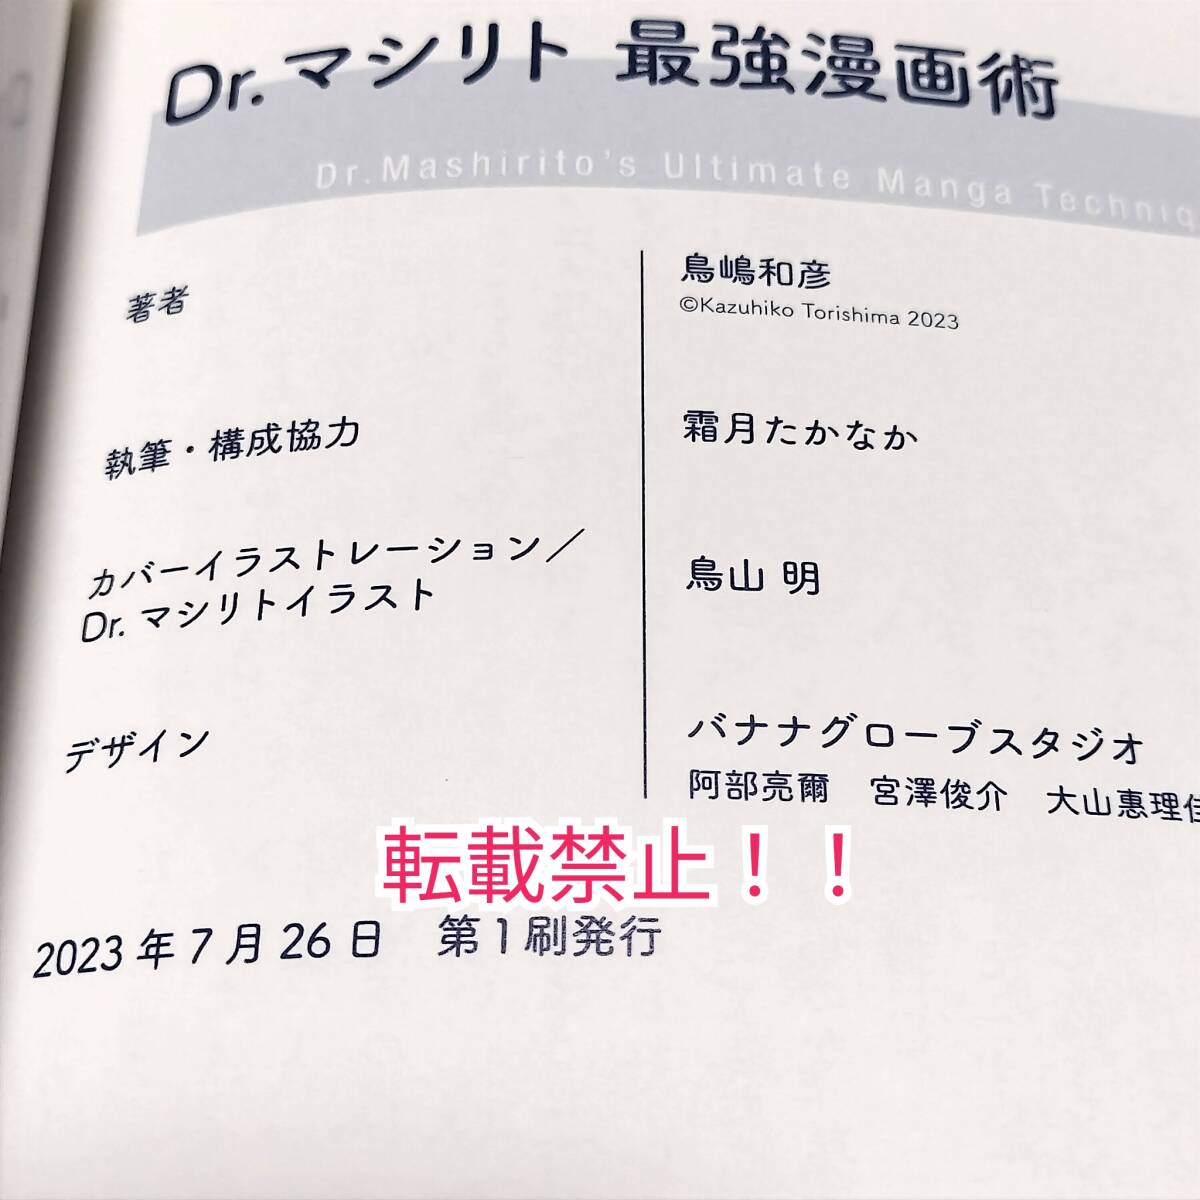 Dr.マシリト 最強漫画術
Dr.Mashirito's Ultimate Manga
著者
鳥嶋和彦
©Kazuhiko Torishima 2023
執筆・構成協力
霜月たかなか
カバーイラストレーション／
Dr.マシリトイラスト
鳥山 明
デザイン
バナナグローブスタジオ
阿部亮爾 宮澤俊介 大山惠理佳
転載禁止！！
2023年7月26日 第1刷発行